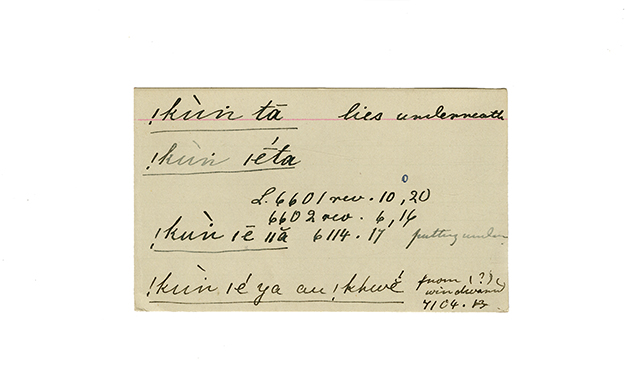 !kùïn tā lies underneath
!kùïn ı̯éta
L. 6601 rev. 10, 20
6602 rev. 6, 16
!kùïn ı̯ē ǁă 6114. 17 putting under
!kùïn ı̯é ya au !khwé̆ from (?)
windward
7104. 13